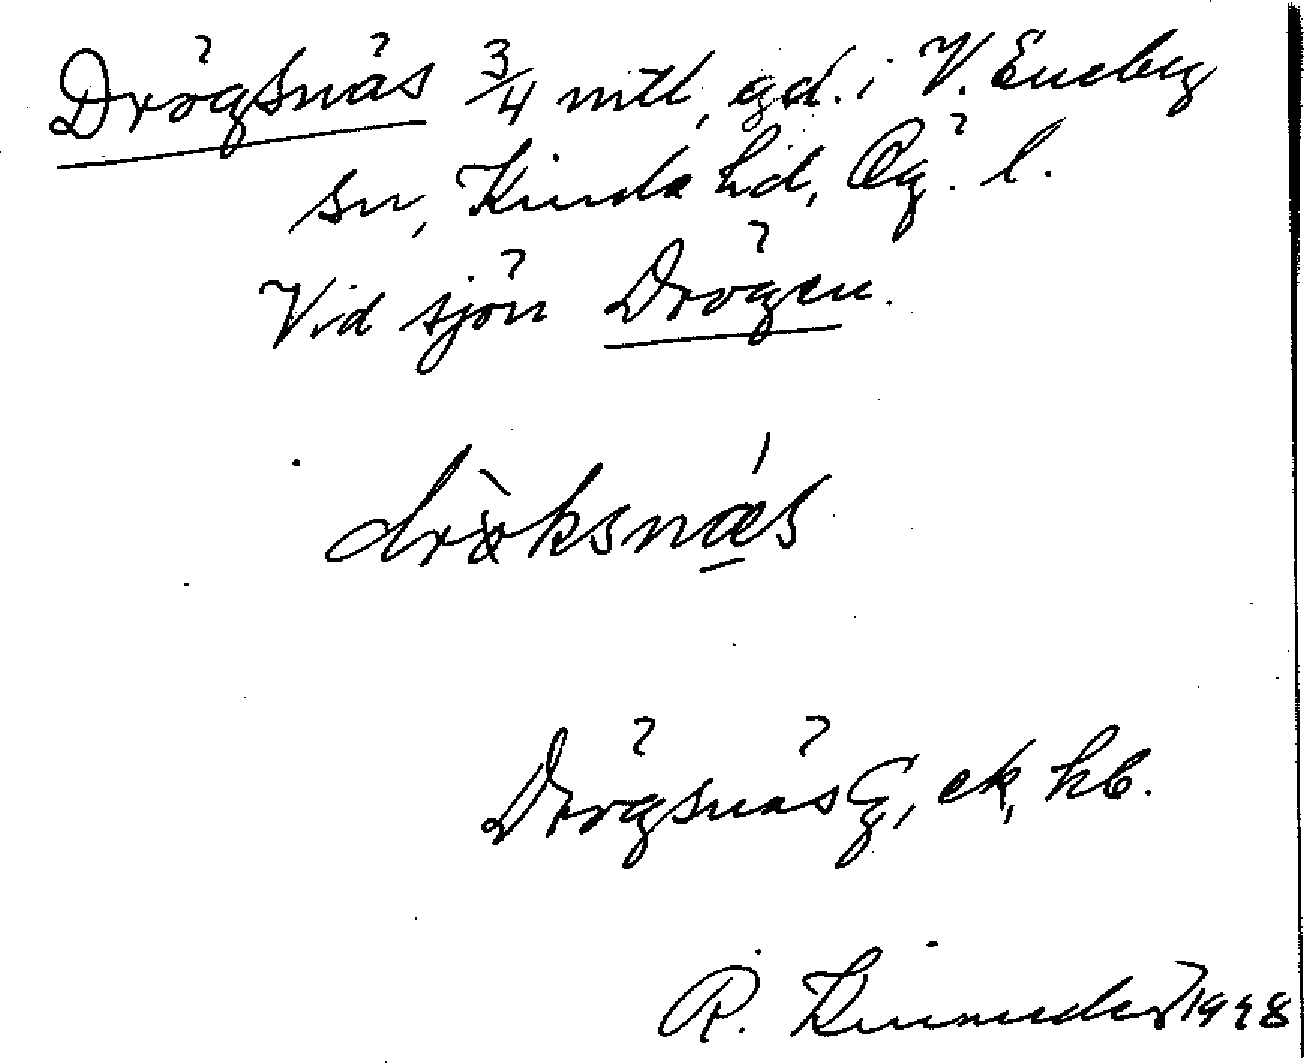 Drögsnäs 3/4 mtl, gd. i V. Eneby
sn, Kinda hd, Ög. l.
Vid sjön Drögen.
drö̀ksnǽs
Drögsnäs G, ek, kb.
R. 1998